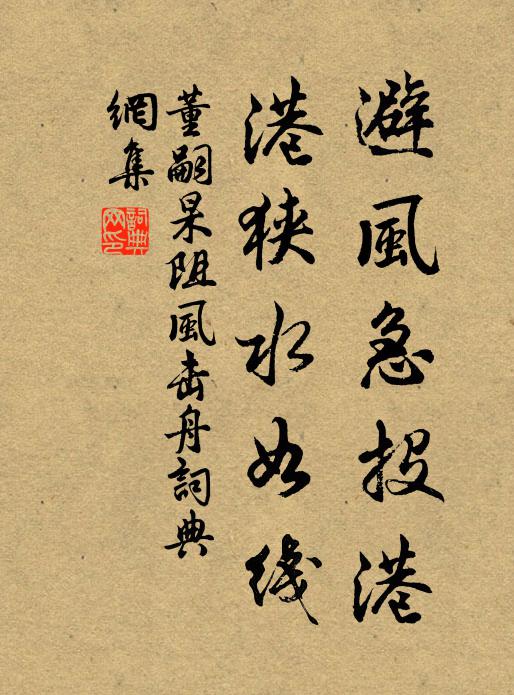 避風急投港
港狹水如綫
董嗣杲阻風击舟詞典
網集
詞典網印